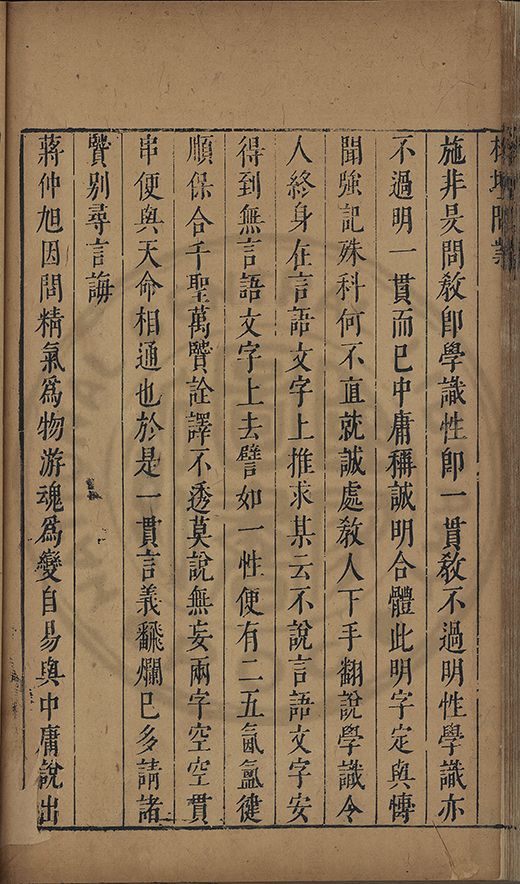 榕壇問業
施非是問敎卽學識性卽一貫敎不過明性學識亦
不過明一貫而已中庸稱誠明合體此明字定與慱
聞強記殊科何不直就誠處敎人下手翻說學識令
人終身在言語文字上推求某云不說言語文字安
得到無言語文字上去譬如一性便有二五氤氳健
順保合千聖萬贒詮譯不透莫說無妄兩字空空貫
串便與天命相通也於是一貫言義飜爛已多請諸
贒别尋言誨
蔣仲旭因問精氣爲物游魂爲變自易與中庸說出